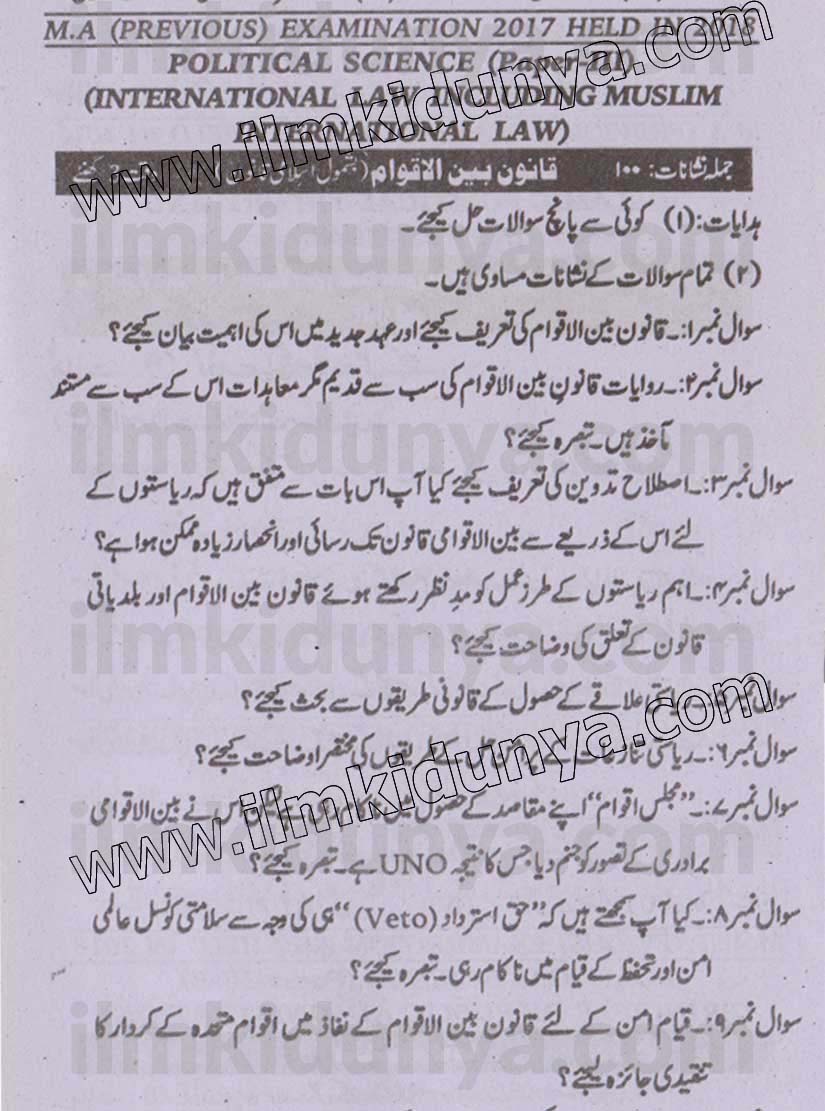 M.A (PREVIOUS) EXAMINATION 2017 HELD IN 2018
POLITICAL SCIENCE (Paper-III)
(INTERNATIONAL LAW INCLUDING MUSLIM
INTERNATIONAL LAW)
www.ilmkidunya.com
جملہ نشانات: ۱۰۰ قانون بین الاقوام (بشمول اسلامی
ہدایات: (۱) کوئی سے پانچ سوالات حل کیجئے۔
(۲) تمام سوالات کے نشانات مساوی ہیں۔
سوال نمبر۱:۔ قانون بین الاقوام کی تعریف کیجئے اور عہد جدید میں اس کی اہمیت بیان کیجئے؟
سوال نمبر۲:۔ روایات قانونِ بین الاقوام کی سب سے قدیم مگر معاہدات اس کے سب سے مستند
مآخذ ہیں۔ تبصرہ کیجئے؟
سوال نمبر۳:۔ اصطلاح تدوین کی تعریف کیجئے کیا آپ اس بات سے متفق ہیں کہ ریاستوں کے
لئے اس کے ذریعے سے بین الاقوامی قانون تک رسائی اور انحصار زیادہ ممکن ہوا ہے؟
سوال نمبر۴:۔ اہم ریاستوں کے طرز عمل کو مدِ نظر رکھتے ہوئے قانون بین الاقوام اور بلدیاتی
قانون کے تعلق کی وضاحت کیجئے؟
سوال نمبر۵:۔ ریاستی علاقے کے حصول کے قانونی طریقوں سے بحث کیجئے؟
سوال نمبر۶:۔ ریاستی تنازعات کے پرامن حل کے طریقوں کی مختصراً وضاحت کیجئے؟
سوال نمبر۷:۔ "مجلس اقوام" اپنے مقاصد کے حصول میں ناکام رہی لیکن اس نے بین الاقوامی
برادری کے تصور کو جنم دیا جس کا نتیجہ UNO ہے۔ تبصرہ کیجئے؟
www.ilmkidunya.com
سوال نمبر۸:۔ کیا آپ سمجھتے ہیں کہ "حق استرداد (Veto)" ہی کی وجہ سے سلامتی کونسل عالمی
امن اور تحفظ کے قیام میں ناکام رہی۔ تبصرہ کیجئے؟
سوال نمبر۹:۔ قیام امن کے لئے قانون بین الاقوام کے نفاذ میں اقوام متحدہ کے کردار کا
تنقیدی جائزہ لیجئے؟